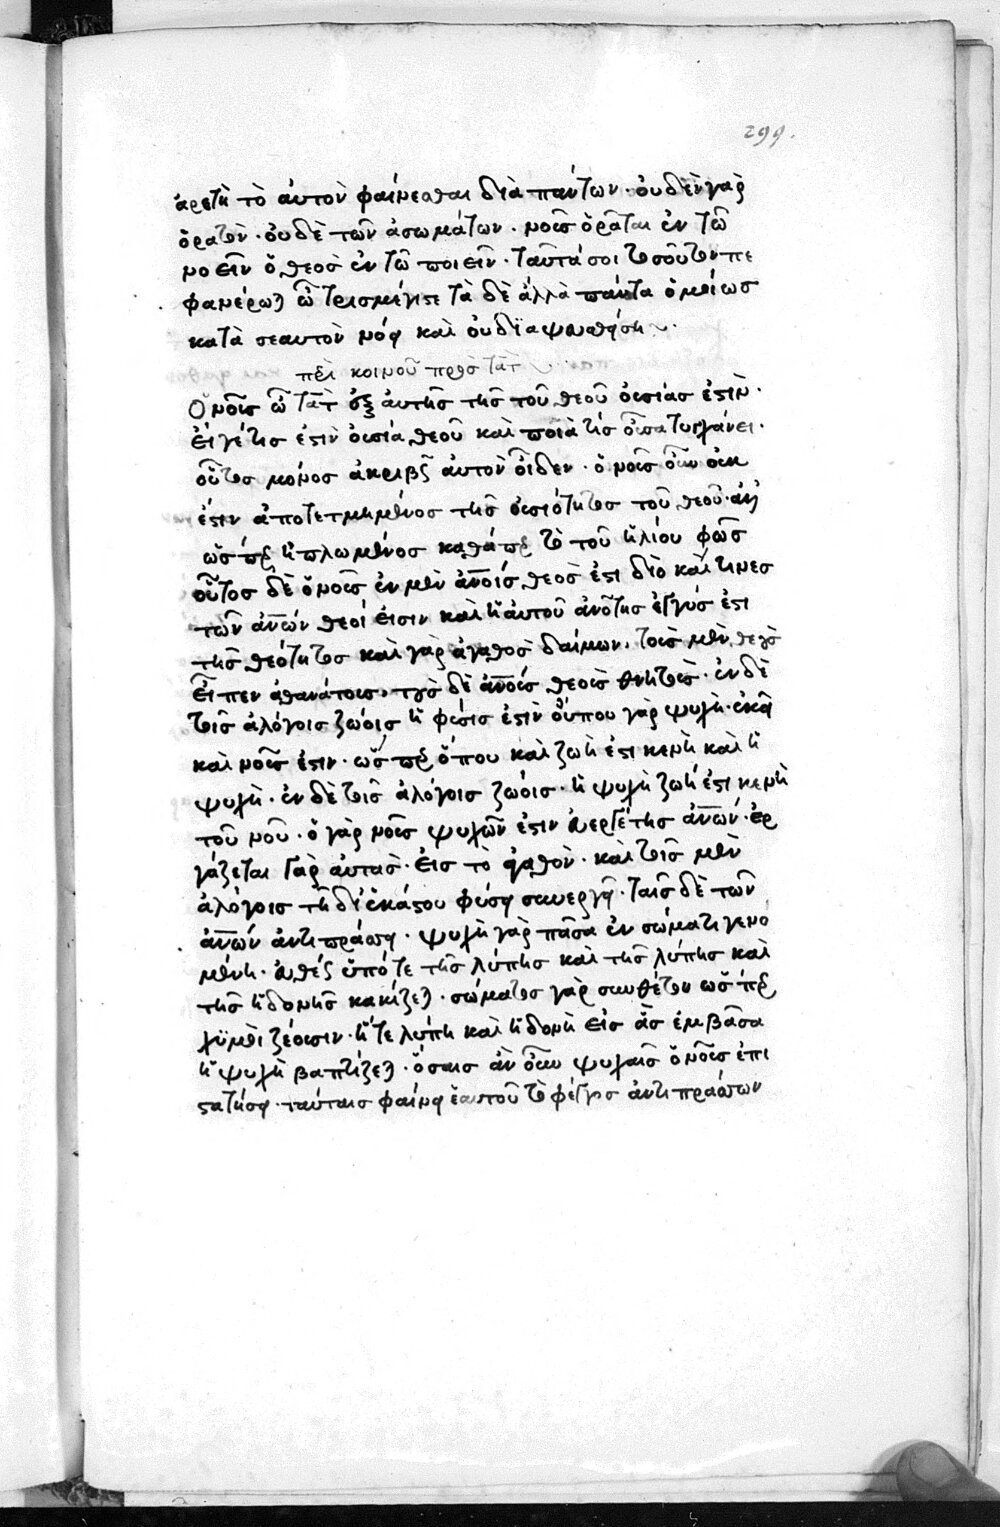 299.
ἀρετὴ τὸ ἀυτὸν φαίνεσθαι διὰ πάντων · ὀυδὲν γὰρ
ὁρατὸν · ὀυδὲ τῶν ἀσωμάτων · νοῦς ὁρᾶται ἐν τῶ
νοεῖν ὁ θεὸς ἐν τῶ ποιεῖν · ταῦτά σοι τοσοῦτον πε
φανέρωται ὦ τρισμέγιστε τὰ δὲ ἄλλα πάντα ὁμοίως
κατὰ σεαυτὸν νόει καὶ ὀυ διαψευσθήση ~ ·
περὶ κοινοῦ πρὸς τὰτ
Ὁ νοῦς ὦ τὰτ ἐξ ἀυτῆς τῆς τοῦ θεοῦ ὀυσίας ἐστὶν ·
εἴ γέ τις ἐστὶν ὀυσία θεοῦ καὶ ποία τις οὖσα τυγχάνει ·
οὗτος μόνος ἀκριβῶς ἀυτὸν οἶδεν · ὁ νοῦς οὖν ὀυκ
ἔστιν ἀποτετμημένος τῆς ὀυσιότητος τοῦ θεοῦ · ἀλλ'
ὥσπερ ἡπλωμένος καθάπερ τὸ τοῦ ἡλίου φῶς
οὗτος δὲ ὁ νοῦς ἐν μὲν ἀνοις θεός ἐστι διὸ καί τινες
τῶν ἀνων θεοί εἰσιν καὶ ἡ ἀυτοῦ ἀνοτης ἐγγύς ἐστι
τῆς θεότητος καὶ γὰρ ἀγαθὸς δαίμων, τοὺς μὲν θεοὺς
εἶπεν ἀθανάτους, τοὺς δὲ ἀνους θεοὺς θνητοὺς · ἐν δὲ
τοῖς ἀλόγοις ζώοις ἡ φύσις ἐστὶν ὅπου γὰρ ψυχὴ · ἐκεῖ
καὶ νοῦς ἐστιν · ὥσπερ ὅπου καὶ ζωὴ ἐστι κενὴ καὶ ἡ
ψυχὴ · ἐν δὲ τοῖς ἀλόγοις ζώοις · ἡ ψυχὴ ζωή ἐστι κενὴ
τοῦ νοῦ · ὁ γὰρ νοῦς ψυχῶν ἐστιν ἐυεργέτης ἀνων · ἐρ
γάζεται γὰρ ἀυτὰς · εἰς τὸ ἀγαθὸν · καὶ τοῖς μὲν
ἀλόγοις τῆ δι' ἑκάστου φύσει συνεργεῖ · ταῖς δὲ τῶν
ἀνων ἀντιπράσσει · ψυχὴ γὰρ πᾶσα ἐν σώματι γενο
μένη · ἐυθὺς ὑπό τε τῆς λύπης καὶ τῆς λύπης καὶ
τῆς ἡδονῆς κακίζεται · σώματος γὰρ συνθέτου ὥσπερ
χυμοὶ ζέουσιν · ἥ τε λύπη καὶ ἡδονὴ εἰς ἃς ἐμβᾶσα
ἡ ψυχὴ βαπτίζεται · ὅσαις ἂν οὖν ψυχαῖς ὁ νοῦς ἐπι
στατήσει · ταύταις φαίνει ἑαυτοῦ τὸ φέγγος ἀντιπράσσων